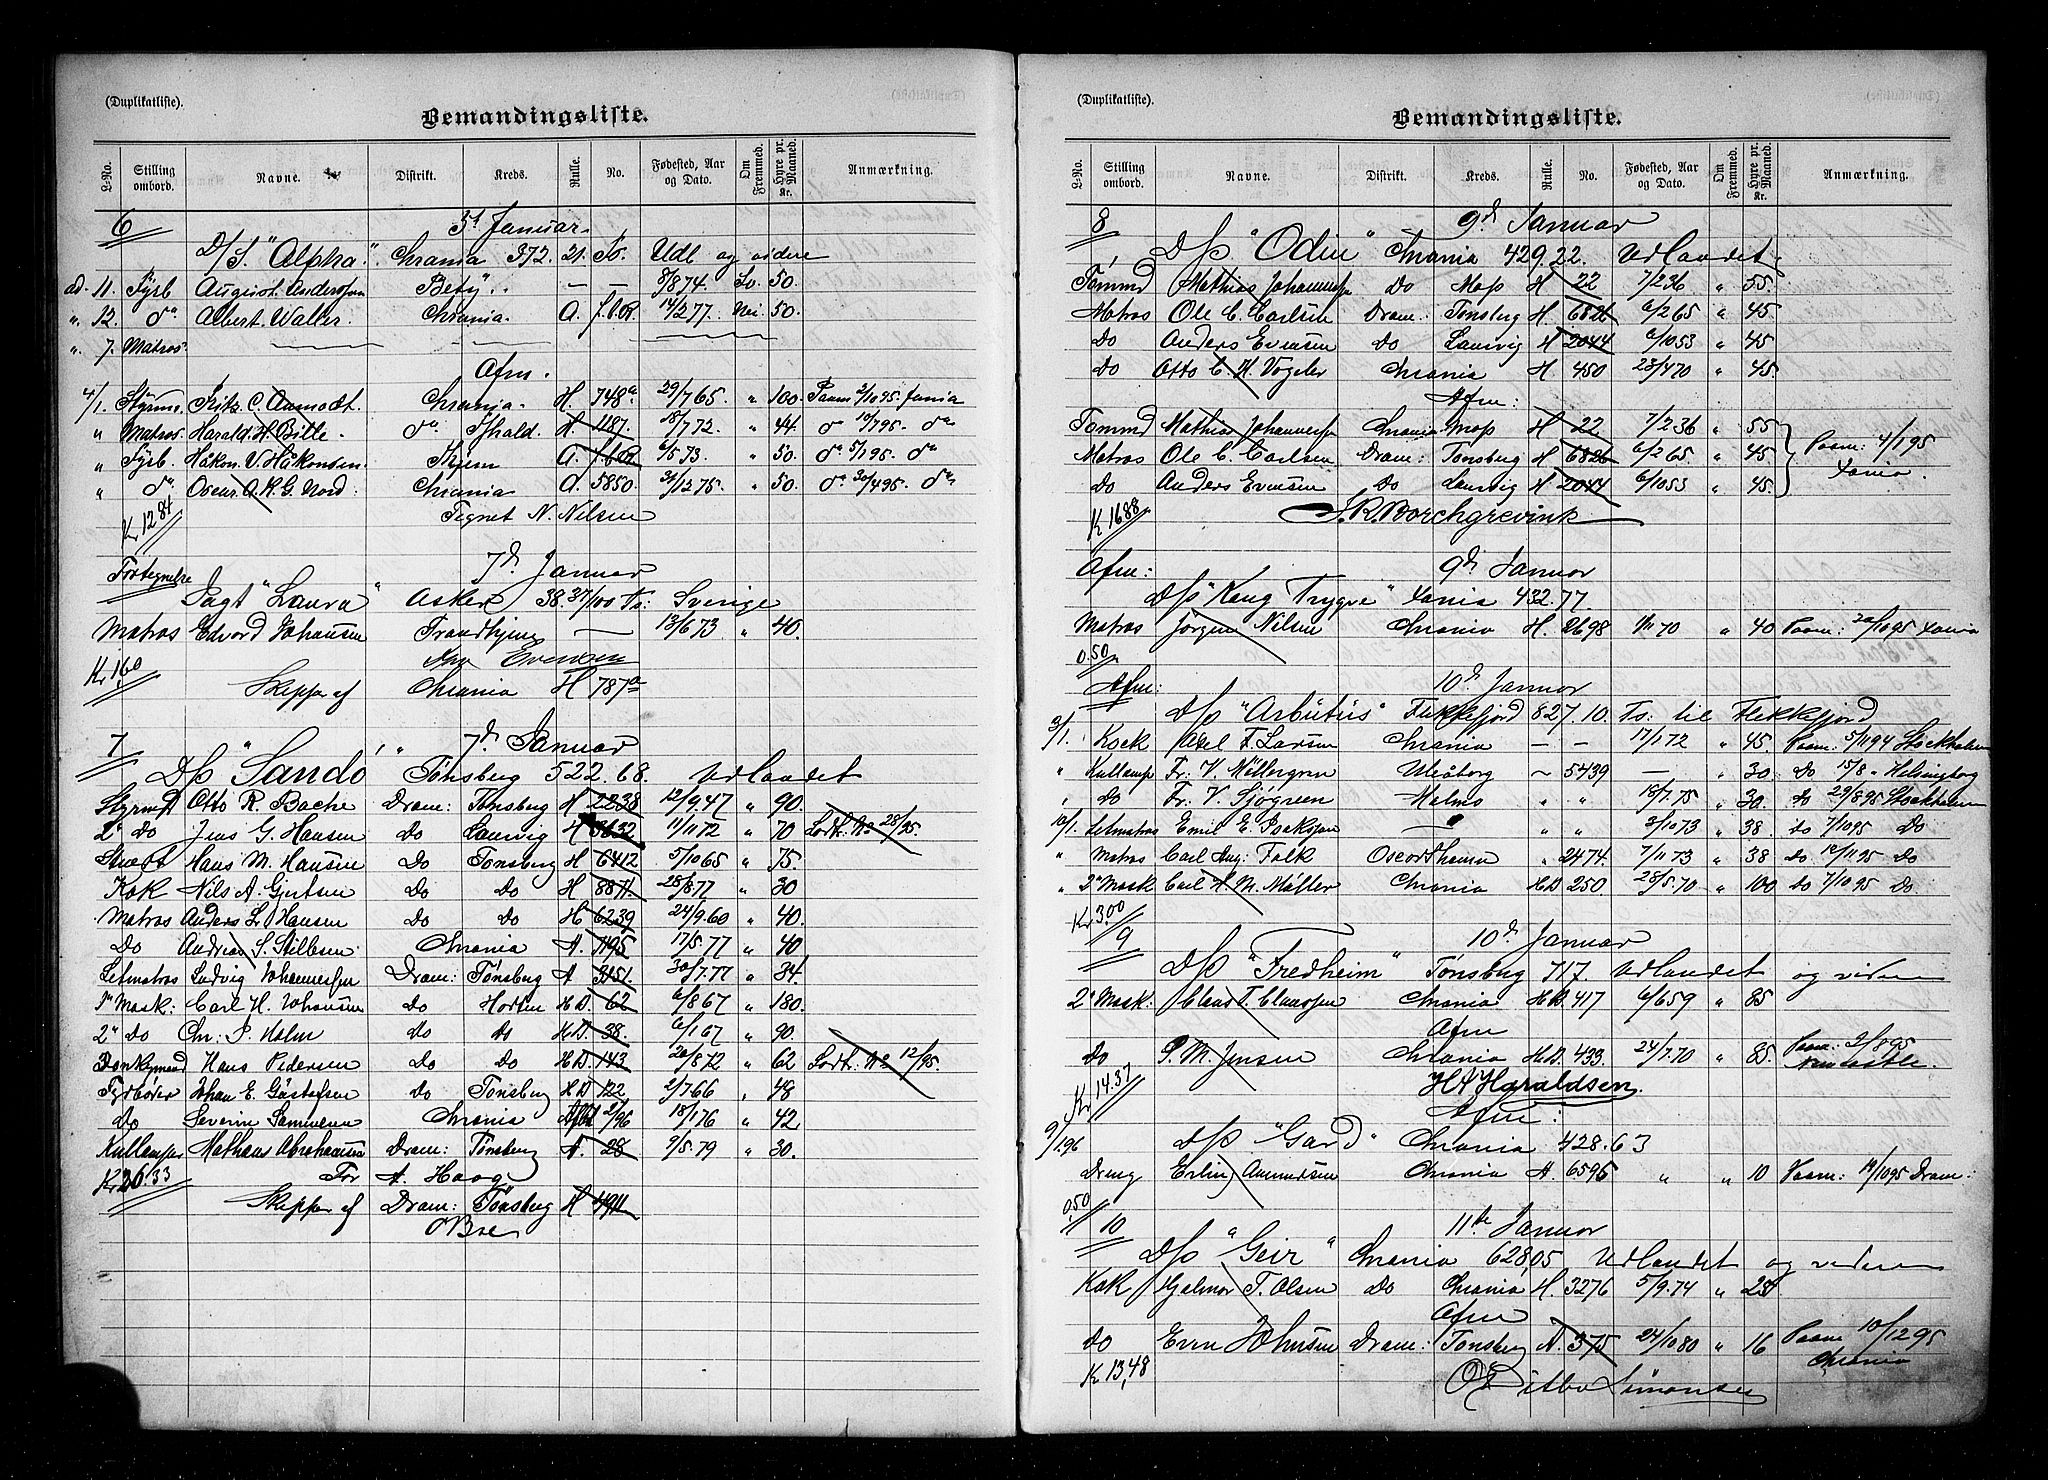 (Duplikatliste).
Bemandingsliste.
L-No. Stilling ombord. Navne. Distrikt. Kreds. Rulle. No. Fødested, Aar og Dato. Om Fremmed. Hyre pr. Maaned. Kr. Anmærkning.
6 3d Januar.
D/S. "Alpha". Chrania 372. 21. To. Udl og videre
ad. 11. Fyrb August Anderssen Bety". — — 8/8 74. Sv. 50.
". 12. do Albert. Waller. Chrania. A. f.b.R. 14/2 77. Nei. 50.
". 7. Matros. — — —
Afm.
4/1. Styrm. Fritz. C. Aamodt. Chrania. H. 748a 29/7 65. " 100. Paam 2/10 95. Xania
" Matros. Harald. H. Bille. do Fhald. H. 1187. 18/7 72. " 44. do 10/7 95. do
" Fyrb. Håkon. V. Håkonsen. Skien A. f.b.R 6/5 73. " 50. do 5/1 95. do
" do Oscar. A. K. G. Nord. Chrania A. 5850. 31/12 75. " 50. do 30/4 95. do
Kr 12.84 Tegnet N. Nilsen
Fortegnelse 7d Januar
Jagt "Laura" Asker 38.37/100 To: Sverige
Matros Edvord Johansen Trondhjem — 13/6 73 " 40.
Kr 1,60 Evensen
Skipper af Chrania H 787a
7 7d Januar
D/S "Sandö" Tönsberg 522.68. Udlandet
Styrmd Otto R. Bache Dram: Tönsberg H 2238 12/9.47 " 90.
2" Do Jens G. Hansen Do Laurvig H 3632 11/11 72 " 70 Lodtb. No 28/95.
Stuert Hans M. Hansen Do Tönsberg H 6412 5/10 65 " 75.
Kok Nils A. Gjertsen Do Do H 8871 28/8.77 " 30
Matros Anders L. Hansen Do Do H 6239 24/9.60 " 40.
Do Andreas S. Stillesen Chrania A. 1195 17/5.77 " 40
Letmatros Ludvig Johannessen Dram: Tönsberg A 3151. 30/7.77 " 34.
1" Mask: Carl H. Johansen do Horten HD 62 6/8 67 " 180.
2" Do Chr: P. Holm do do HD. 38. 6/1 67 " 90.
Donkymand Hans Pedersen Do Do HD. 143 20/8 72 " 62 Lodtb. No 12/95.
Fyrböder Johan E. Göstafsen do Tönsberg HD 122 2/7 66 " 48
do Severin Samuelsen Chrania 2/96 18/1 76 " 42
Kullemper Mathias Abrahamsen Dram: Tönsberg A. 28 9/5.79 " 30.
Kr 26.33 For A. Haage
Skipper af Dram: Tönsberg H 4911
(Duplikatliste).
Bemandingsliste.
L-No. Stilling ombord. Navne. Distrikt. Kreds. Rulle. No. Fødested, Aar og Dato. Om Fremmed. Hyre pr. Maaned. Kr. Anmærkning.
8 9d Januar
D/S "Odin" Chrania 429.22. Udlandet
Tömmd Mathias Johannessen Do Mos H 22 7/2 36 " 55.
Matros Ole C. Carlsen Dram: Tönsberg H. 6826 6/2 65 " 45
Do Anders Evensen Do Laurvig H 2044 6/10 53 " 45
Do Otto C. H. Vogeler Chrania H 450 23/4 70 " 45.
Afm:
Tömmd Mathias Johannessen Chrania Mos H 22 7/2 36 " 55
Matros Ole C. Carlsen Dram: Tönsberg H 6826 6/2 65 " 45 Paam: 4/1 95
Do Anders Evensen Do Laurvig H 2044 6/10 53 " 45. Xania
Kr 16.88 S.R. Borchgrevink
Afm: 9d Januar
D/S "Kong Trygve" Xania 432.77.
Matros Jörgen Nilsen Chrania H. 2698 1/11 70 " 40 Paam: 20/10 95 Xania
0.50
Afm: 10d Januar
D/S "Arbutus" Flekkefjord 827.10 To: til Flekkefjord
3/1. Kock Axel F. Larsen Chrania — — 17/1 72 " 45. Paam: 5/11 94 Stockholm
" Kullemp Fr: V. Möllergren Uleåborg ~ 5439 — " 30. Do 15/8 " Helsingborg
" Do Fr. V. Sjögreen Malmö " " 18/7.75 " 30. do 29/8 95 Stockholm
10/1. Letmatros Emil E. Isaksson — " " 3/10 73 " 38. do 7/10 95 Do
" Matros Carl Aug: Falk Oscarshamn " 2474 7/11 73 " 38 do 18/11 95 Do
" 2" Mask Carl A. M. Möller Chrania HD 250 28/5.70 " 100 do 7/10 95 do
Kr 3.00
9 10d Januar
D/S "Fredheim" Tönsberg 717. Udlandet og videre
2" Mask: Claus T. Claussen Chrania HD. 417 6/6 59 " 85
Afm
Do P. M. Jensen Chrania HD. 433. 24/7.70 " 85. Paam: 2/8 95 Newcastle
Kr 14.37 H A Haraldsen.
Afm:
9/1 96 D/S "Gard" Chrania 428.63
Dreng Erling Aamundsen Chrania A. 6595 " " 10 Paam: 14/10 95 Dram:
0.50
10 11te Januar
D/S "Geir" Chrania 628,05 Udlandet og videre
Kok Hjalmar T. Olsen Do Chrania H. 3276 5/9.74 " 28
Afm
Do Even Johnsen Dram: Tönsberg A. 375 24/10 80 " 16 Paam 10/12 95 Chrania
Kr 13,48 Simonsen